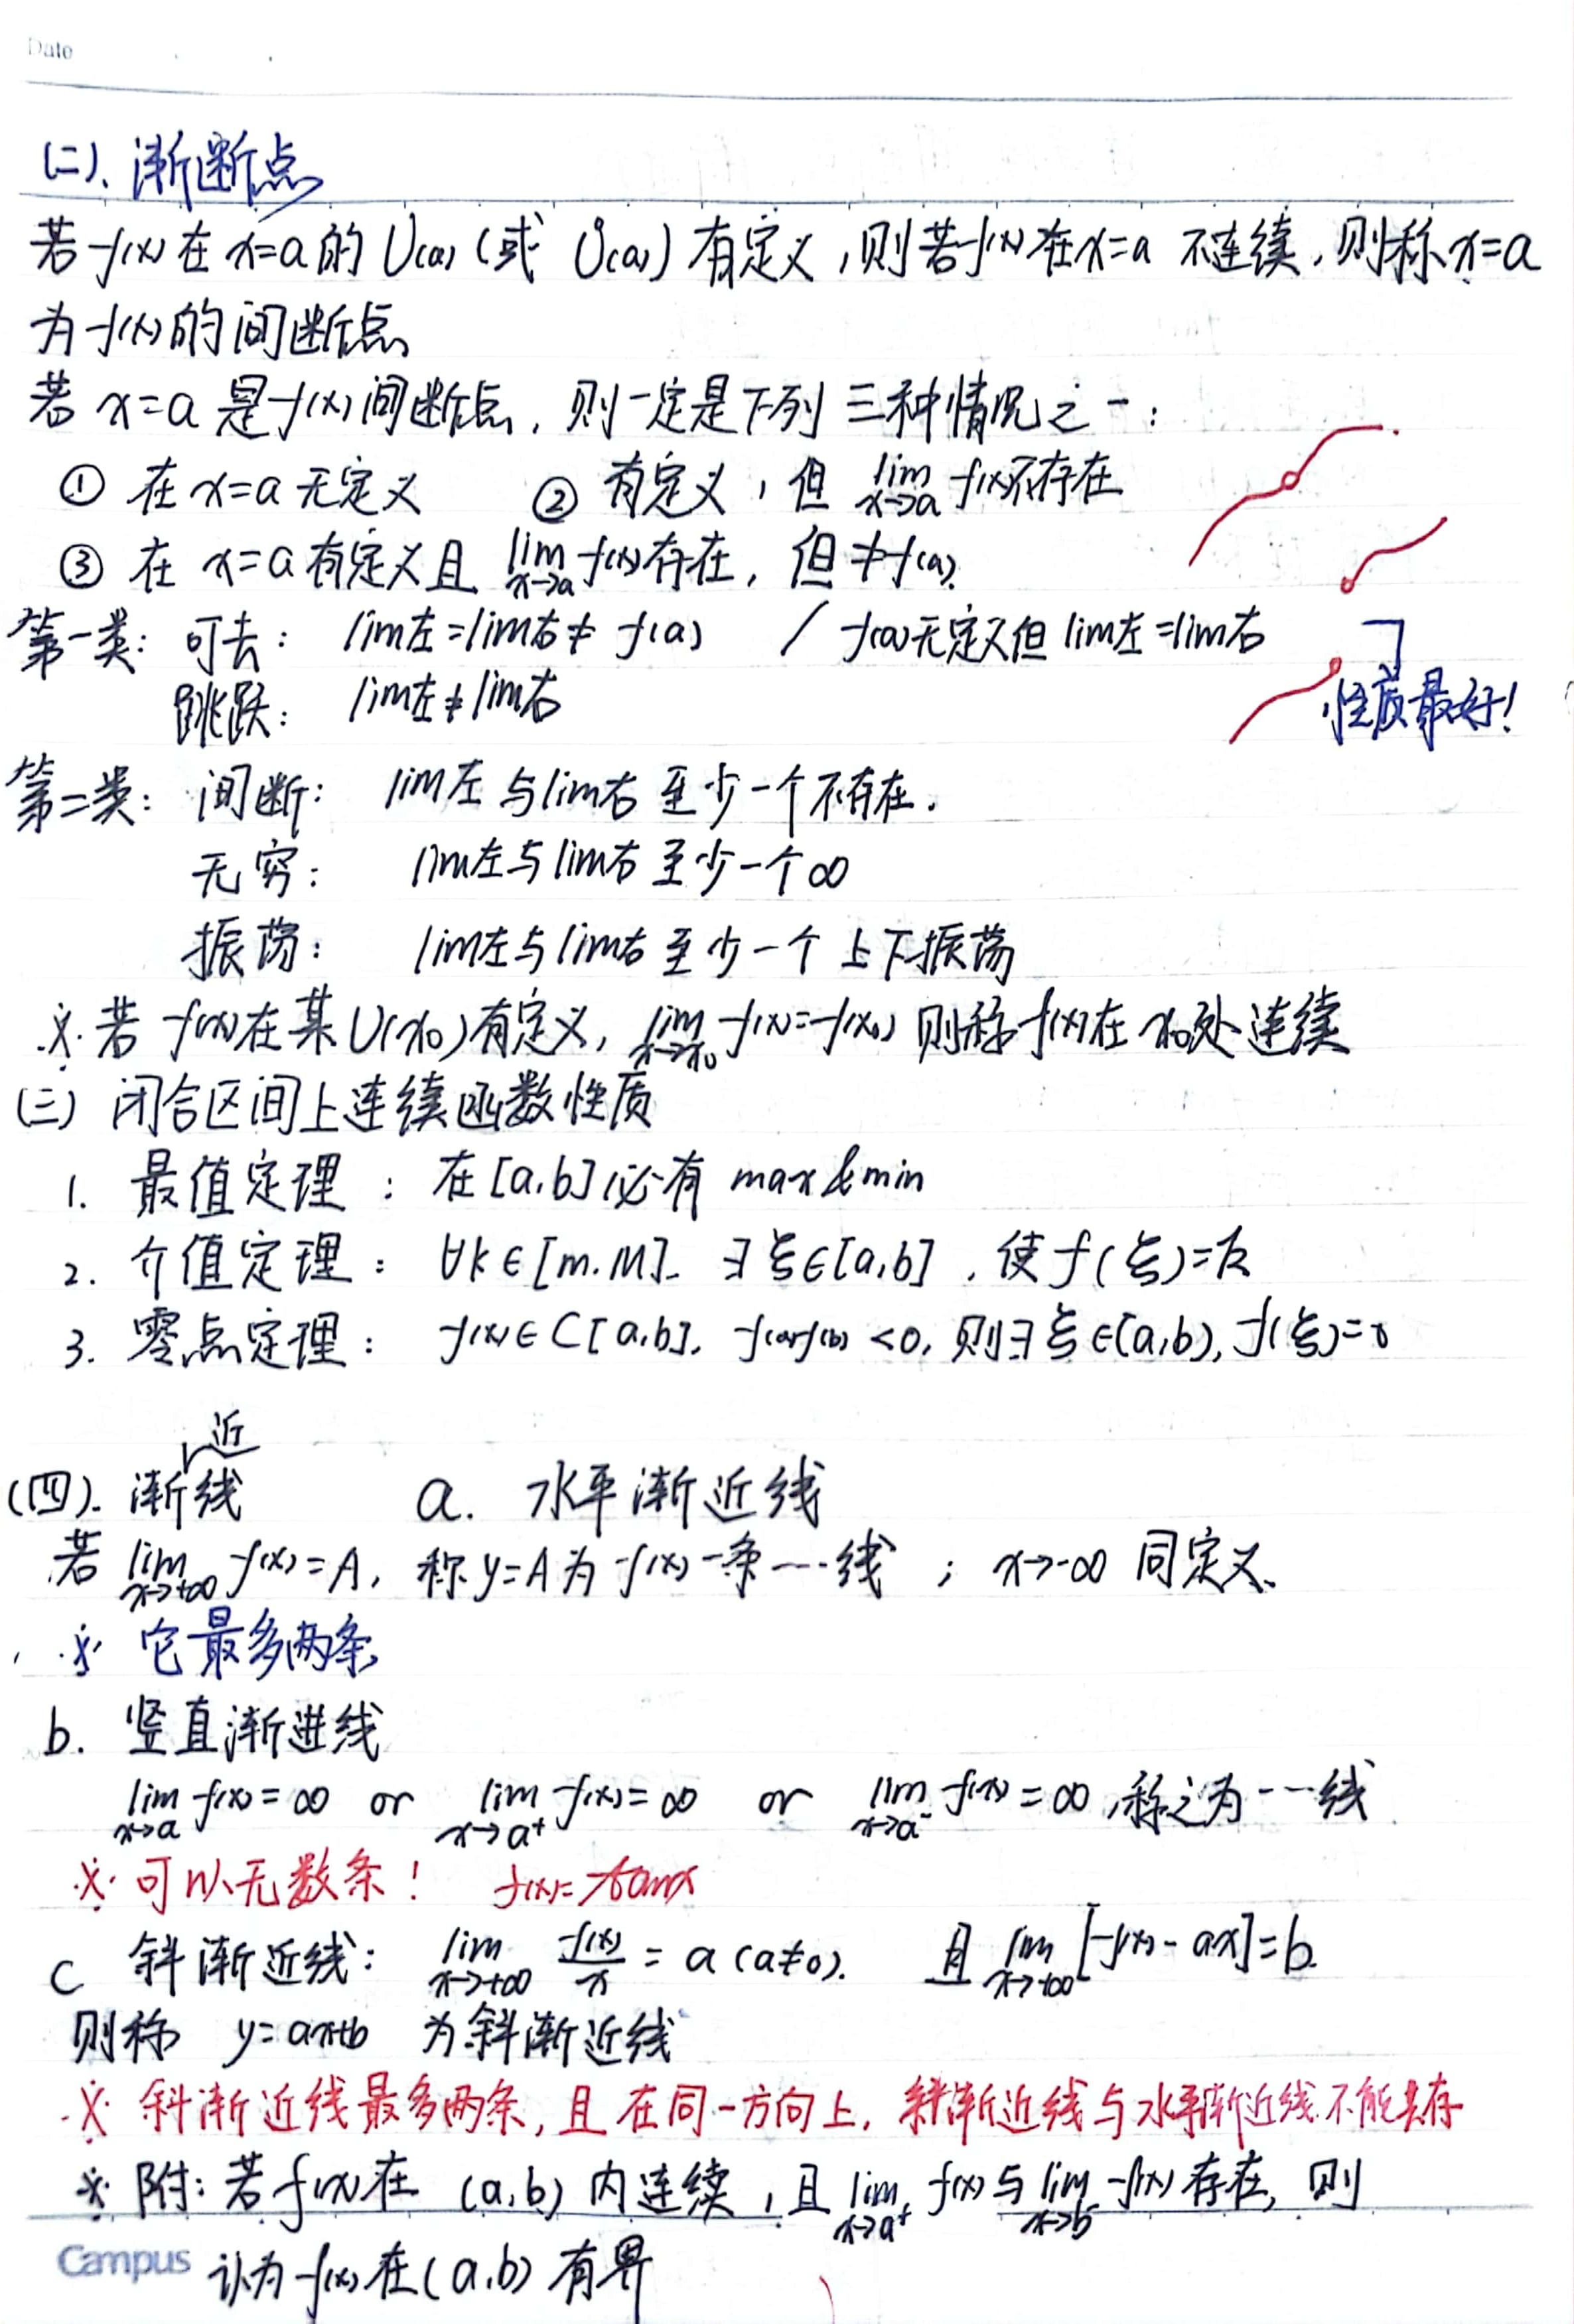 Date
(二)、渐断点
若f(x)在x=a的U(a)(或 Ů(a))有定义,则若f(x)在x=a 不连续,则称x=a
为f(x)的间断点
若 x=a 是f(x)间断点, 则一定是下列 三种情况之一:
① 在x=a无定义 ② 有定义,但 lim x→a f(x)不存在
③ 在 x=a有定义且 lim x→a f(x)存在, 但≠f(a).
第一类: 可去: lim左=lim右≠ f(a) / f(a)无定义但lim左=lim右
跳跃: lim左≠lim右
性质最好!
第二类: 间断: lim左与lim右 至少一个不存在.
无穷: lim左与lim右 至少一个∞
振荡: lim左与lim右 至少一个 上下振荡
※ 若 f(x)在某U(x₀)有定义, lim x→x₀ f(x)=f(x₀) 则称f(x)在x₀处连续
(三) 闭合区间上连续函数性质
1. 最值定理: 在[a,b]必有 max & min
2. 介值定理: ∀k∈[m.M]. ∃ξ∈[a,b],使f(ξ)=k
3. 零点定理: f(x)∈C[a,b], f(a)f(b)<0, 则∃ξ∈(a,b), f(ξ)=0
(四). 渐近线 a. 水平渐近线
若 lim x→+∞ f(x)=A, 称y=A为f(x)一条---线 ; x→-∞ 同定义.
※ 它最多两条
b. 竖直渐进线
lim x→a f(x)=∞ or lim x→a⁺ f(x)=∞ or lim x→a⁻ f(x)=∞,称之为---线
※ 可以无数条! f(x)=tanx
c 斜渐近线: lim x→+∞ f(x)/x = a (a≠0). 且 lim x→+∞ [f(x)-ax]=b.
则称 y=ax+b 为斜渐近线
※ 斜渐近线最多两条,且在同一方向上, 斜渐近线与水平渐近线不能共存
※ 附: 若f(x)在 (a,b) 内连续,且 lim x→a⁺ f(x)与lim x→b⁻ f(x)存在, 则
认为f(x)在(a,b)有界
Campus